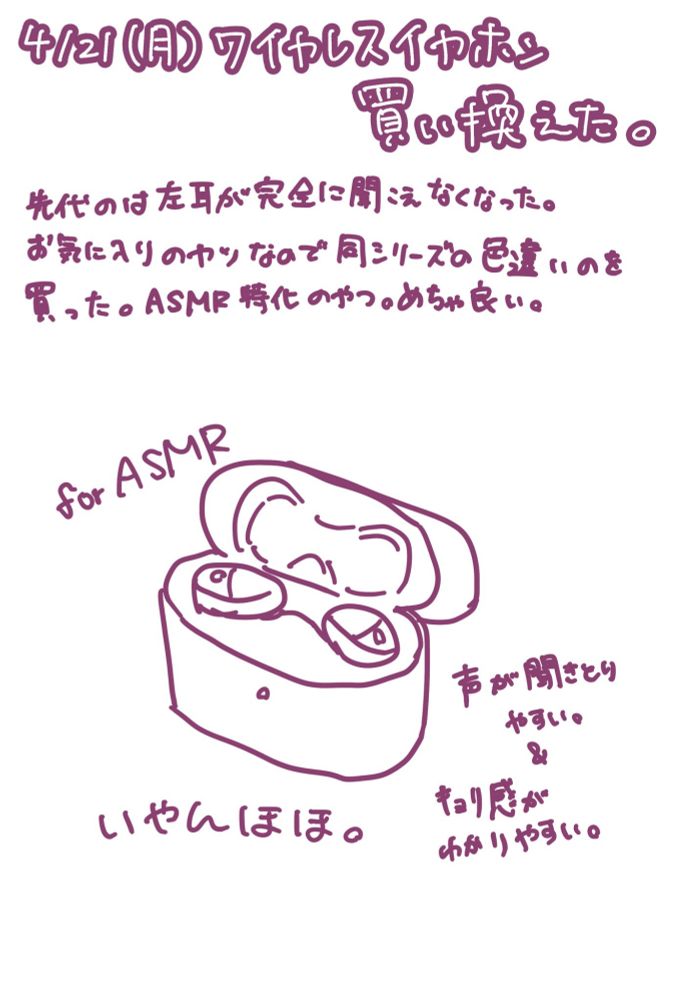 4/21(月)ワイヤレスイヤホン
買い換えた。
先代のは左耳が完全に聞こえなくなった。
お気に入りのヤツなので同シリーズの色違いのを
買った。ASMR特化のやつ。めちゃ良い。
for ASMR
声が聞きとり
やすい。
&
キョリ感が
わかりやすい。
いやんほほ。